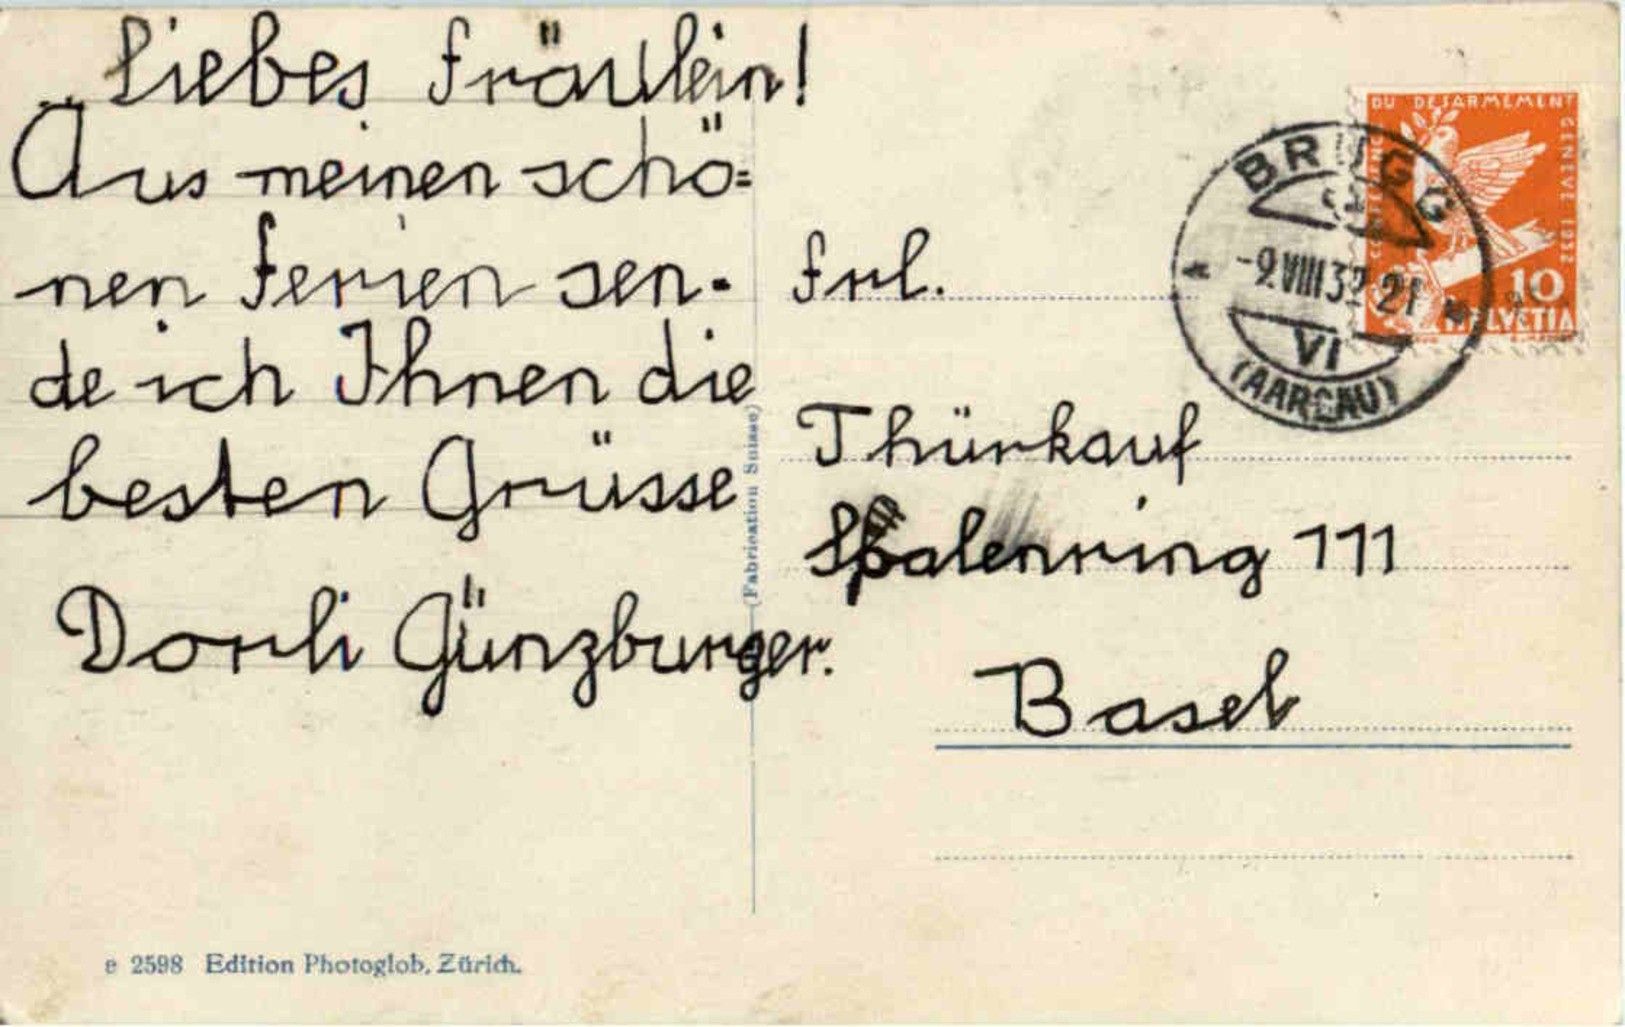 Liebes Fräulein!
Aus meinen schö=
nen Ferien sen-
de ich Ihnen die
besten Grüsse
Dorli Günzburger.
(Fabrication Suisse)
Frl.
Thürkauf
Spalenring 111
Basel
DU DESARMEMENT
GENEVE 1932
10
HELVETIA
BRUGG
-9.VIII 32 21
VI
(AARGAU)
e 2598 Edition Photoglob, Zürich.